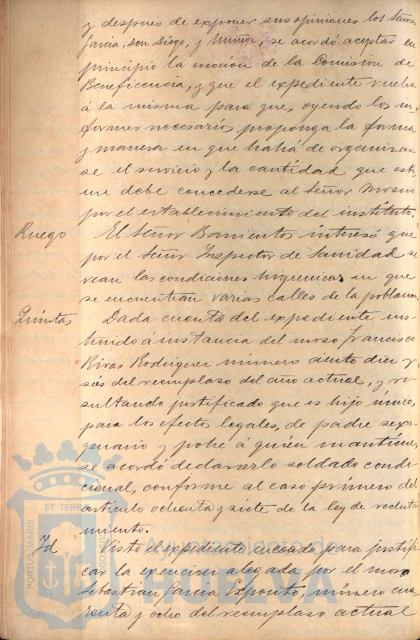 y despues de exponer sus opiniones los Señores
Garcia, Don Diego, y Muñoz, se acordó aceptar en
principio la moción de la Comision de
Beneficencia, y que el expediente vuelva
á la misma para que, oyendo los in
formes necesarios, proponga la forma
y manera en que habrá de organizar
se el servicio y la cantidad que esti
me debe concederse al Señor
por el establecimiento del instituto.
Ruego
El Señor Barrientos interesó que
por el Señor Inspector de Sanidad se
vean las condiciones higienicas en que
se encuentran varias calles de la poblacion
Quintas
Dada cuenta del expediente ins
truido á instancia del mozo Francisco
Rivas Rodriguez número ciento diez y
seis del reemplazo del año actual, y re
sultando justificado que es hijo único,
para los efectos legales, de padre sexa
genario y pobre á quien mantiene,
se acordó declararlo soldado condi
cional, conforme al caso primero del
articulo ochenta y siete de la ley de recluta
miento.
Id
Visto el expediente incoado para justifi
car la exencion alegada por el mozo
Sebastian Garcia Exposito, número cua
renta y ocho del reemplazo actual
PORTUS MARIS ET TERRAE
Ayuntamiento de
HUELVA